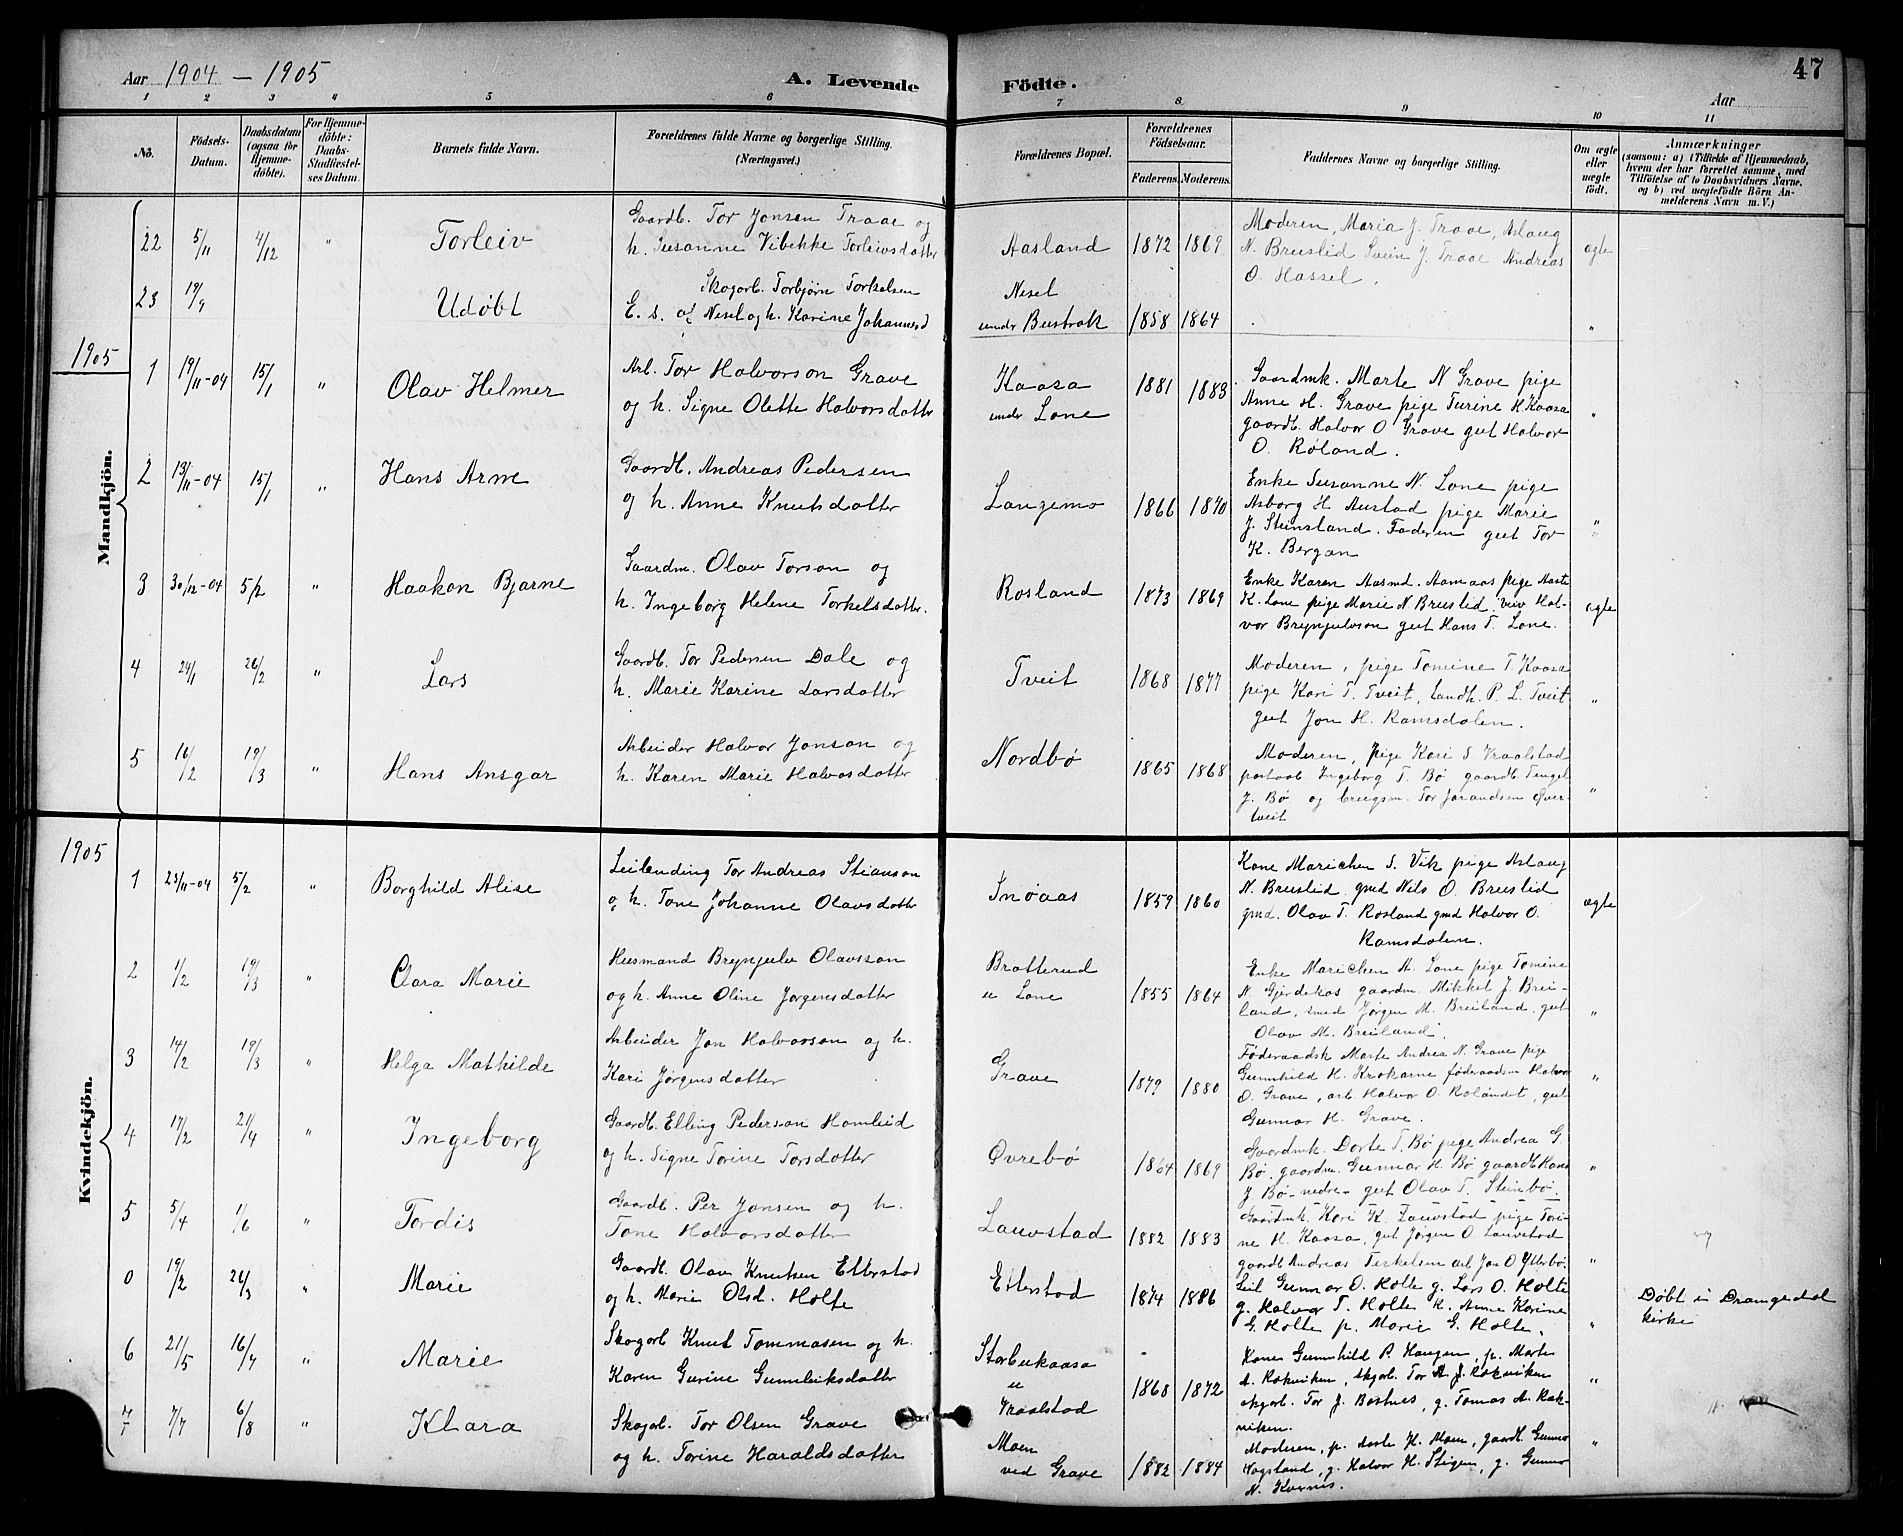 47
Aar 1904 - 1905 A. Levende Födte. Aar
1 2 3 4 5 6 7 8 9 10 11
No. Födsels-Datum. Daabsdatum (ogsaa for Hjemme-döbte). For Hjemme-döbte: Daabs-Stadfæstel-ses Datum. Barnets fulde Navn. Forældrenes fulde Navne og borgerlige Stilling. (Næringsvei.) Forældrenes Bopæl. Forældrenes Födselsaar. Faderens. Moderens. Faddernes Navne og borgerlige Stilling. Om ægte eller uægte födt. Anmærkninger (saasom: a) i Tilfælde af Hjemmedaab, hvem der har forrettet samme, med Tilföielse af to Daabsvidners Navne, og b) ved uægtefödte Börn Anmelderens Navn m. V.)
Mandkjön.
22 5/11 4/12 " Torleiv Gaardb. Tor Jonsen Traae og Aasland 1872 1869 Moderen, Maria J. Traae, Aslaug ægte
h. Susanne Vibekke Torleivsdatter N. Bruslid Svein J. Traae Andreas
O. Hassel.
23 19/9 Udøbt Skogarb. Torbjørn Torkelsen Nesel
E. s. af Nesel og h. Karine Johannesd under Bustrak 1858 1864 "
1905
1 19/11-04 15/1 " Olav Helmer Arb. Tor Halvorson Grave Kaasa 1881 1883 Gaardmk. Marte N Grave pige
og h. Signe Olette Halvorsdatter under Lone Anne H. Grave pige Turine H. Kaasa "
gaardb. Halvor O Grave gut Halvor
O. Røland.
2 13/11-04 15/1 " Hans Arne Gaardb. Andreas Pedersen Enke Susanne N. Lone pige
og h. Anne Knutsdatter 1866 1870 Asborg H Austad pige Marie
J. Steinsland. Faderen gut Tor "
K. Bergan
3 30/12-04 5/2 " Haakon Bjarne Gaardm. Olav Torson og Rosland 1873 1869 Enke Karen Aasmd. Aamaas pige Aaste
h. Ingeborg Helene Torkelsdatter. K. Lone pige Marie N Bruslid. Hal- ægte
vor Brynjulvson gut Hans T. Lone.
4 24/1 26/2 " Lars Gaardb. Tor Pedersen Dale og Tveit 1868 1877 Moderen, pige Tomine T. Kaasa
h. Marie Karine Larsdatter pige Kari T. Tveit, Landh. P. L. Tveit "
gut Jon H. Ramsdalen.
5 16/2 19/3 " Hans Ansgar Arbeider Halvor Jonson og Nordbø 1865 1868 Moderen, pige Kari S. Vraalstad
h. Karen Marie Halvorsdatter Ingeborg T. Bø gaardb. Tengel
J. Bø og brugsm. Tor Jorandsen Øver- "
tveit
Kvindekjön.
1905
1 23/11-04 5/2 " Borghild Alise Leilending Tor Andreas Stianson Snøaas 1859 1860 Kone Marichen S. Vik pige Aslaug
og h. Tone Johanne Olavsdatter N. Bruslid gmd Nils O. Bruslid
gmd. Olav T. Rosland gmd Halvor O. ægte
Ramsdalen.
2 1/2 19/3 " Clara Marie Husmand Brynjulv Olavsson Bratterud 1855 1864 Enke Marichen A. Lone pige Tomine
og h. Anne Oline Jørgensdatter u Lone N. Gjerdekos gaardm. Mikkel J. Brei-
land, smed Jørgen M. Breiland. gut "
Olav M. Breiland.
3 14/2 19/3 " Helga Mathilde Arbeider Jon Halvorson og h. Grave 1879 1880 Føderaadsk Marte Andrea N. Grave pige
Kari Jørgensdatter Gunnhild H. Krokarne føderaadsm. Halvor "
O. Grave, arb. Halvor O. Rolandet, gut
Gunnar H. Grave.
4 17/2 21/4 " Ingeborg Gaardb. Elling Pederson Homleid Øvrebø 1864 1869 Gaardmk. Dorte T. Bø pige Andrea G.
og h. Signe Torine Torsdatter Bø gaardm. Gunnar H. Bø gaardb Hans "
J. Bø-nedre- gut Olav T. Steinbø.
5 5/4 1/6 " Tordis Gaardb. Per Jonsen og h. Lauvstad 1882 1883 Gaardmk. Kari K. Lauvstad pige Tori-
Tone Halvorsdatter ne H. Kaasa, gut Jørgen O. Lauvstad
gaardb Andreas Terkelsen arb Jon O Ytterbø. "
0 19/2 26/3 " Marie Gaardb. Olav Knutsen Etterstad Etterstad 1874 1886 Leil Gunnar O. Holte g. Lars O. Holte Døbt i Drangedal
og h. Marie Olsd. Holte g. Halvor T. Holte k. Anne Karine kirke
G. Holte p. Marie G. Holte. "
6 21/5 16/7 " Marie Skogarb Knut Tommasen og h. Storbukaasa 1868 1872 Kone Gunnhild P. Haugen, p. Marte
Karen Gurine Gunnleiksdatter u A. Rokviken, skgarb. Tor A J. Rokviken
Vraalstad skgarb. Tor J. Bostnes, g. Tomas A. Rok- "
viken.
7 7/7 6/8 " Klara Skogarb. Tor Olsen Grave Moen 1882 1884 Moderen, p. Aaste H. Moen, gaardb. Gunnar "
og h. Torine Haraldsdatter ved Grave Vogsland, g. Halvor H. Stigen, g. Gunnar
N. Kvernes.